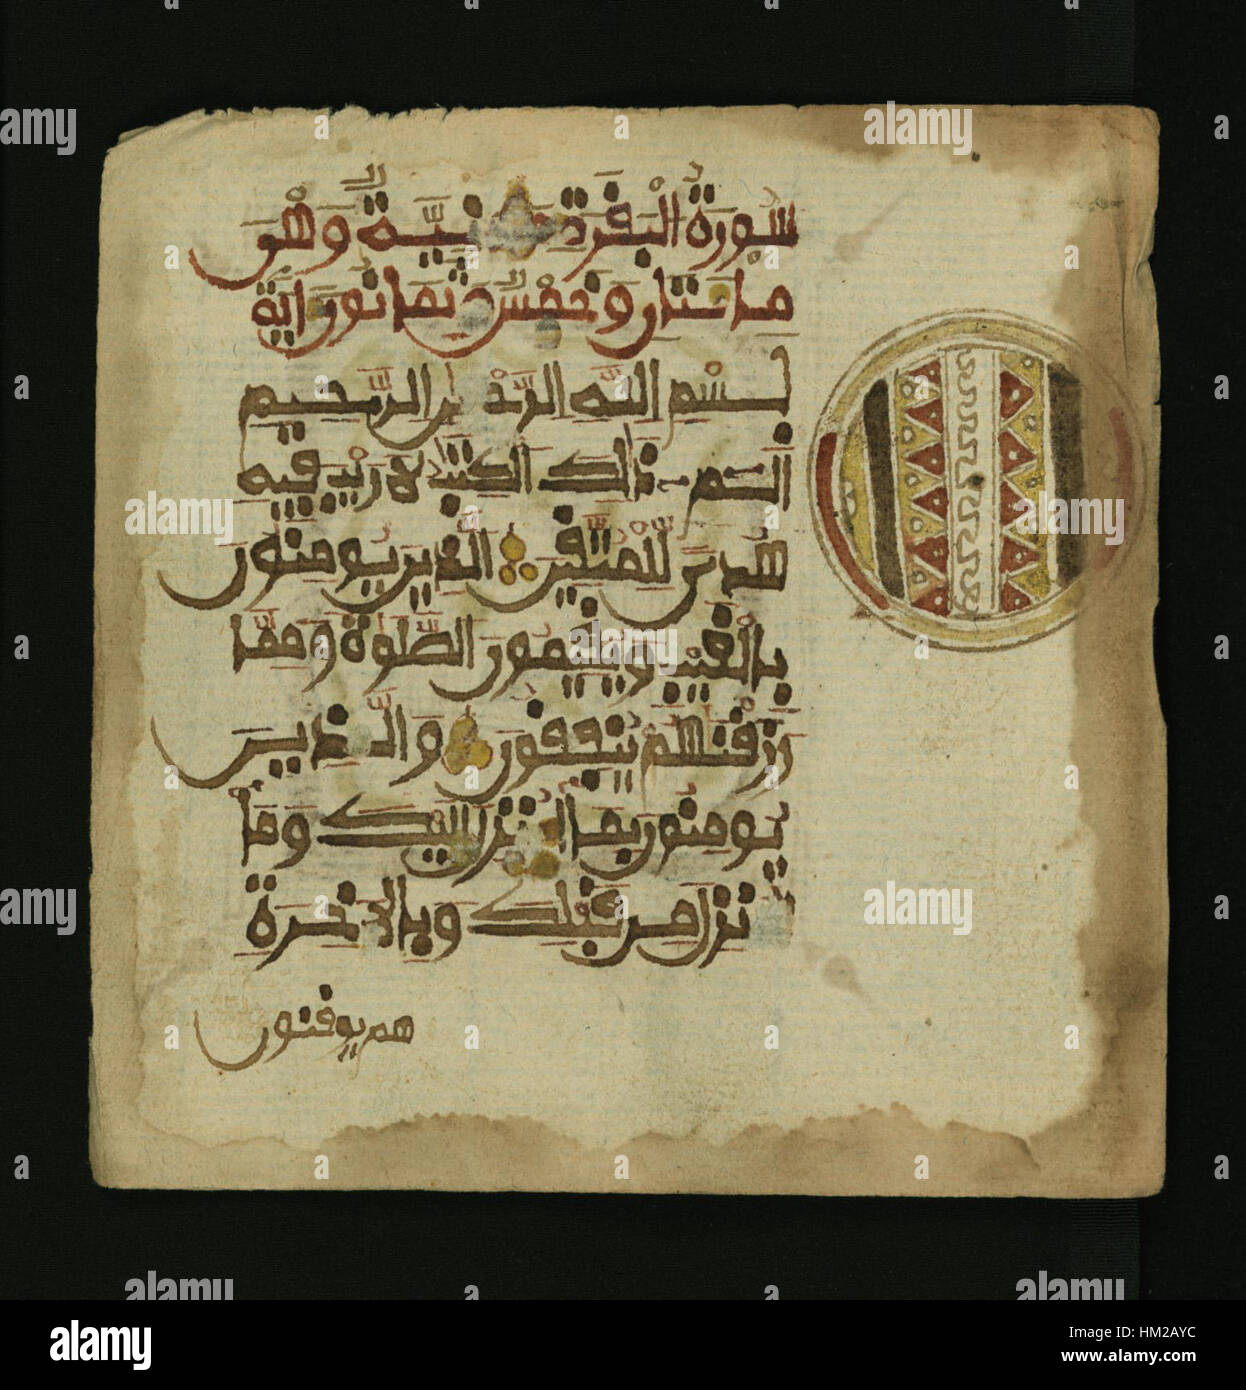 سورة البقرة مدنية وهي
مايتان وخمس وثمانون اية
بسم الله الرحمن الرحيم
الم ذلك الكتب لا ريب فيه
هدى للمتقين الذين يومنون
بالغيب ويقيمون الصلوة ومما
رزقنهم ينفقون والذين
يومنون بما انزل اليك وما
انزل من قبلك وبالاخرة
هم يوقنون
alamy
Image ID: HM2AYC
www.alamy.com